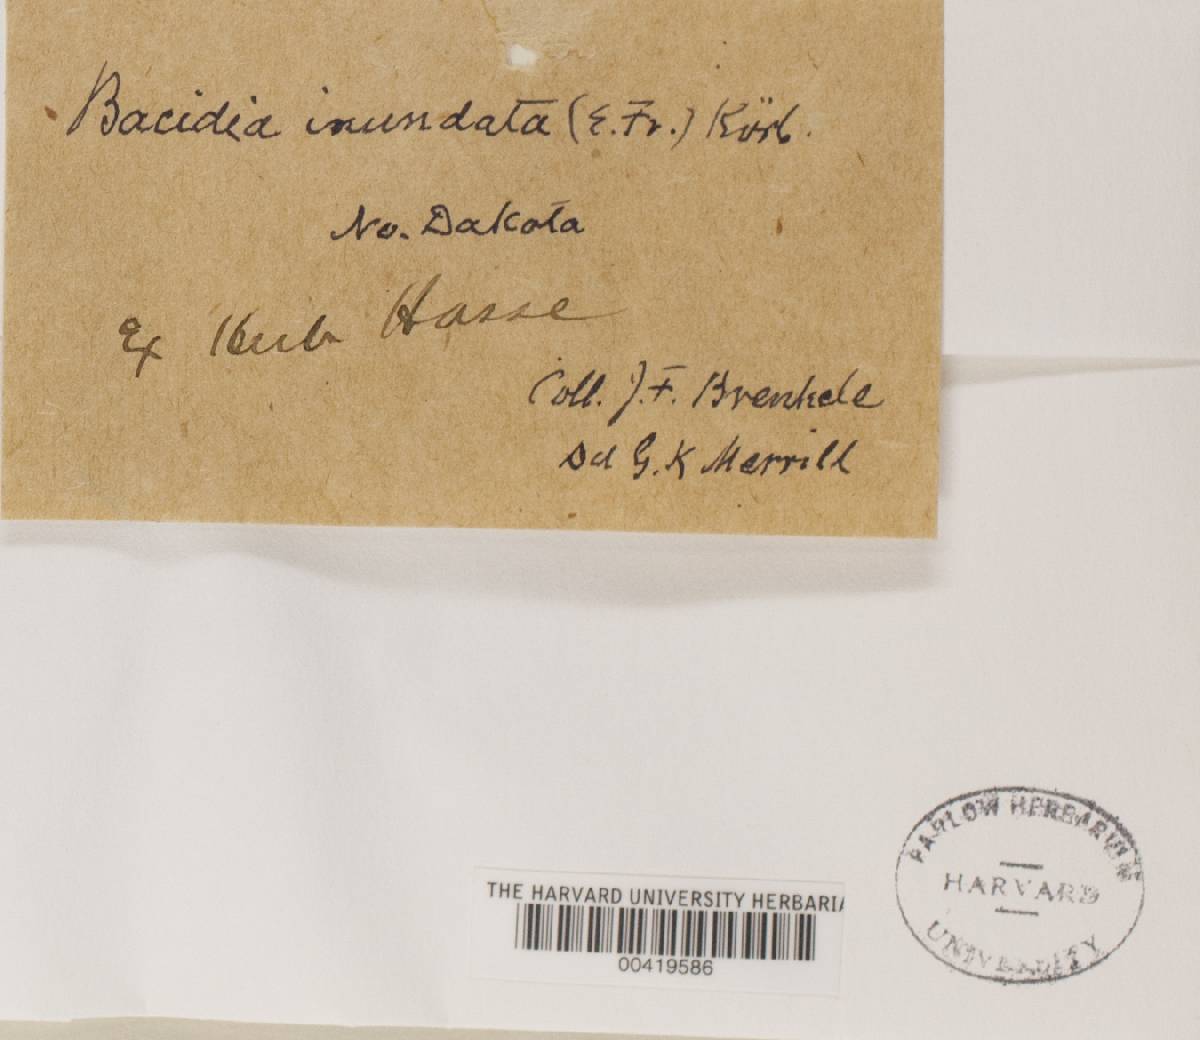 Bacidia inundata (E. Fr.) Körb.
No. Dakota
Ex Herb Hasse
Coll. J. F. Brenkele
Dd G. K Merrill
THE HARVARD UNIVERSITY HERBARIA
00419586
FARLOW HERBARIUM
HARVARD
UNIVERSITY